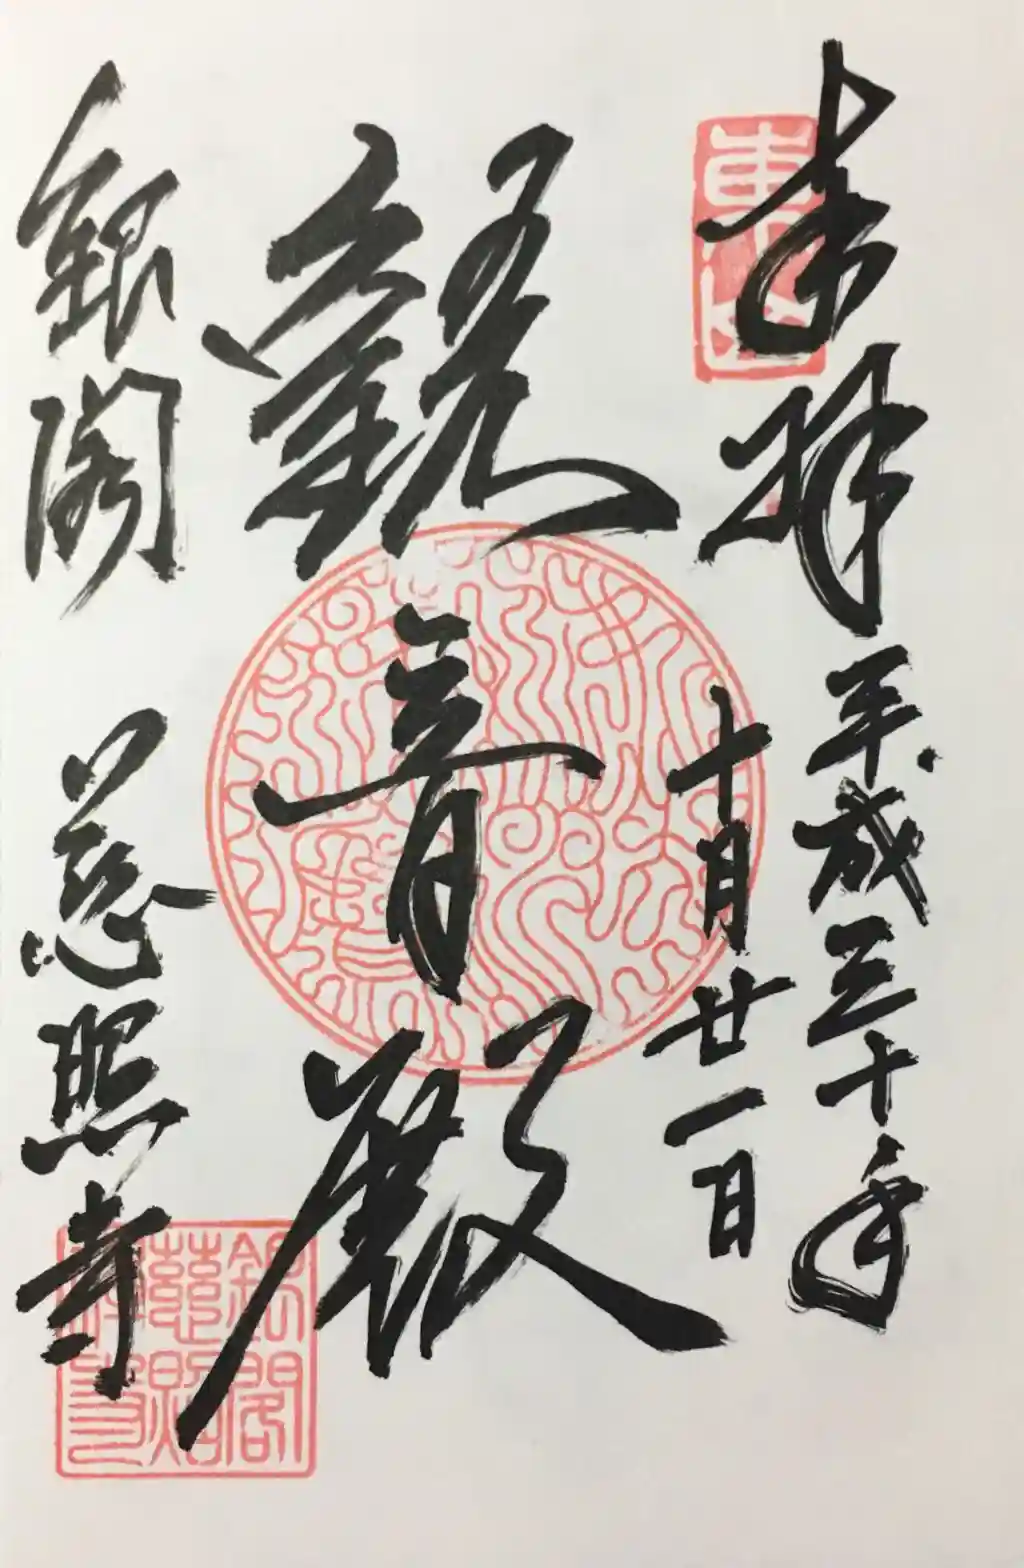 奉拝
平成三十年
十月廿一日
觀音殿
銀閣
慈照寺
東山
銀閣
慈照
禅寺